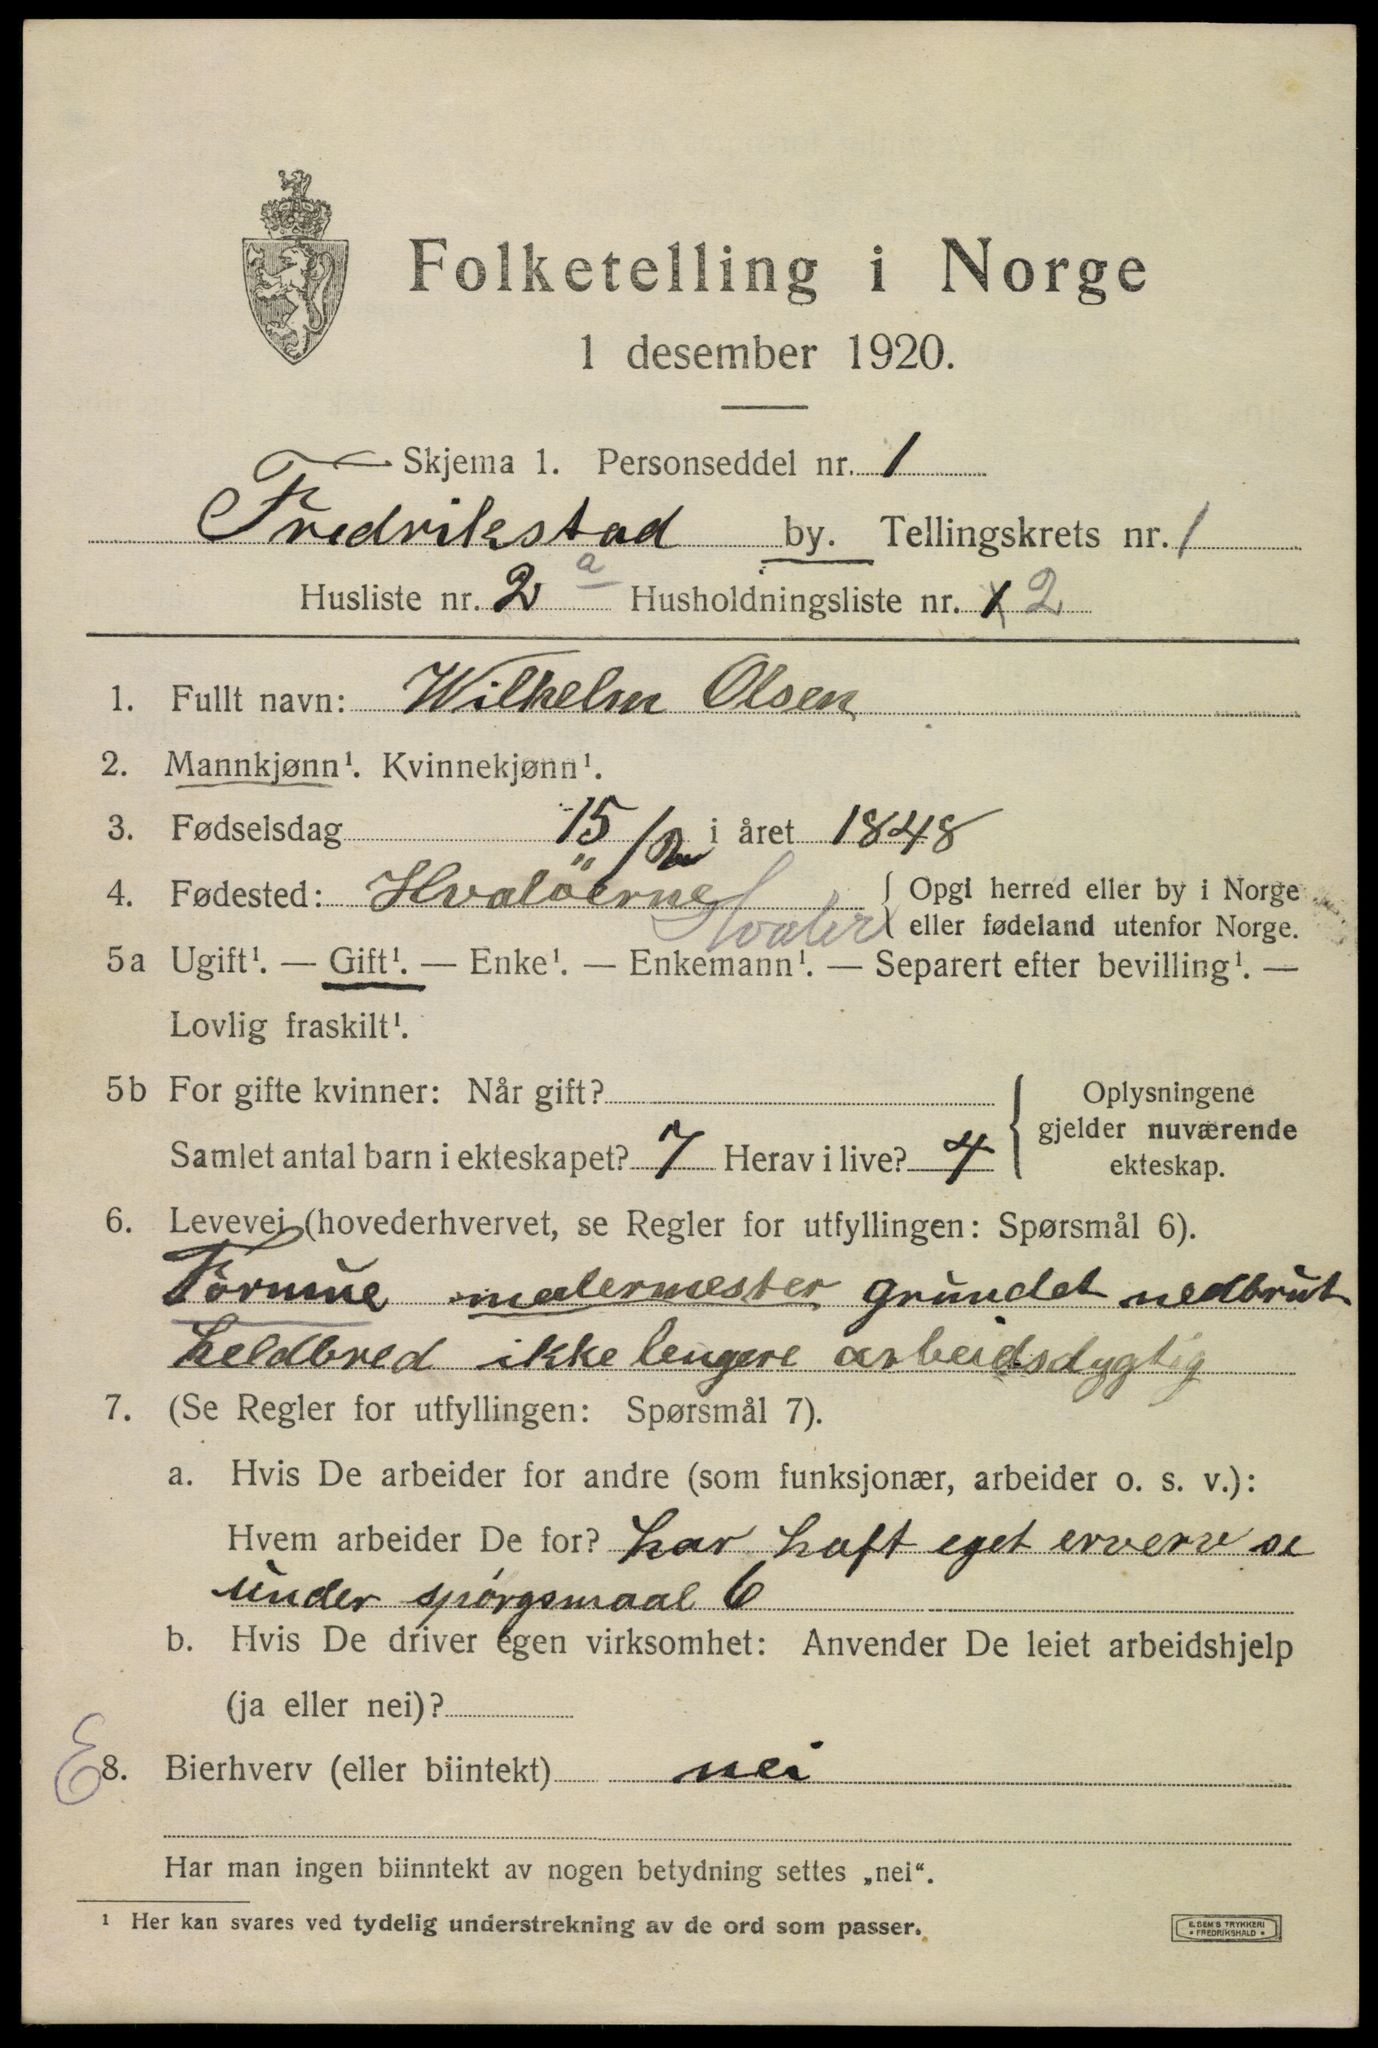 Folketelling i Norge
1 desember 1920.
Skjema 1. Personseddel nr. 1
Fredrikstad by. Tellingskrets nr. 1
Husliste nr. 2 a Husholdningsliste nr. 1 2
1. Fullt navn: Wilhelm Olsen
2. Mannkjønn¹. Kvinnekjønn¹.
3. Fødselsdag 15/2 i året 1848
4. Fødested: Hvaløerne Hvaler { Opgi herred eller by i Norge
eller fødeland utenfor Norge.
5a Ugift¹. — Gift¹. — Enke¹. — Enkemann¹. — Separert efter bevilling¹. —
Lovlig fraskilt¹.
5b For gifte kvinner: Når gift? { Oplysningene
gjelder nuværende
ekteskap.
Samlet antal barn i ekteskapet? 7 Herav i live? 4
6. Levevei (hovederhvervet, se Regler for utfyllingen: Spørsmål 6).
Formue malermester grundet nedbrut
heldbred ikke lengere arbeidsdygtig
7. (Se Regler for utfyllingen: Spørsmål 7).
a. Hvis De arbeider for andre (som funksjonær, arbeider o. s. v.):
Hvem arbeider De for? har haft eget erverv se
under spørgsmaal 6
b. Hvis De driver egen virksomhet: Anvender De leiet arbeidshjelp
(ja eller nei)?
E 8. Bierhverv (eller biintekt) nei
Har man ingen biinntekt av nogen betydning settes „nei“.
¹ Her kan svares ved tydelig understrekning av de ord som passer.
E. SEM'S TRYKKERI
• FREDRIKSHALD •